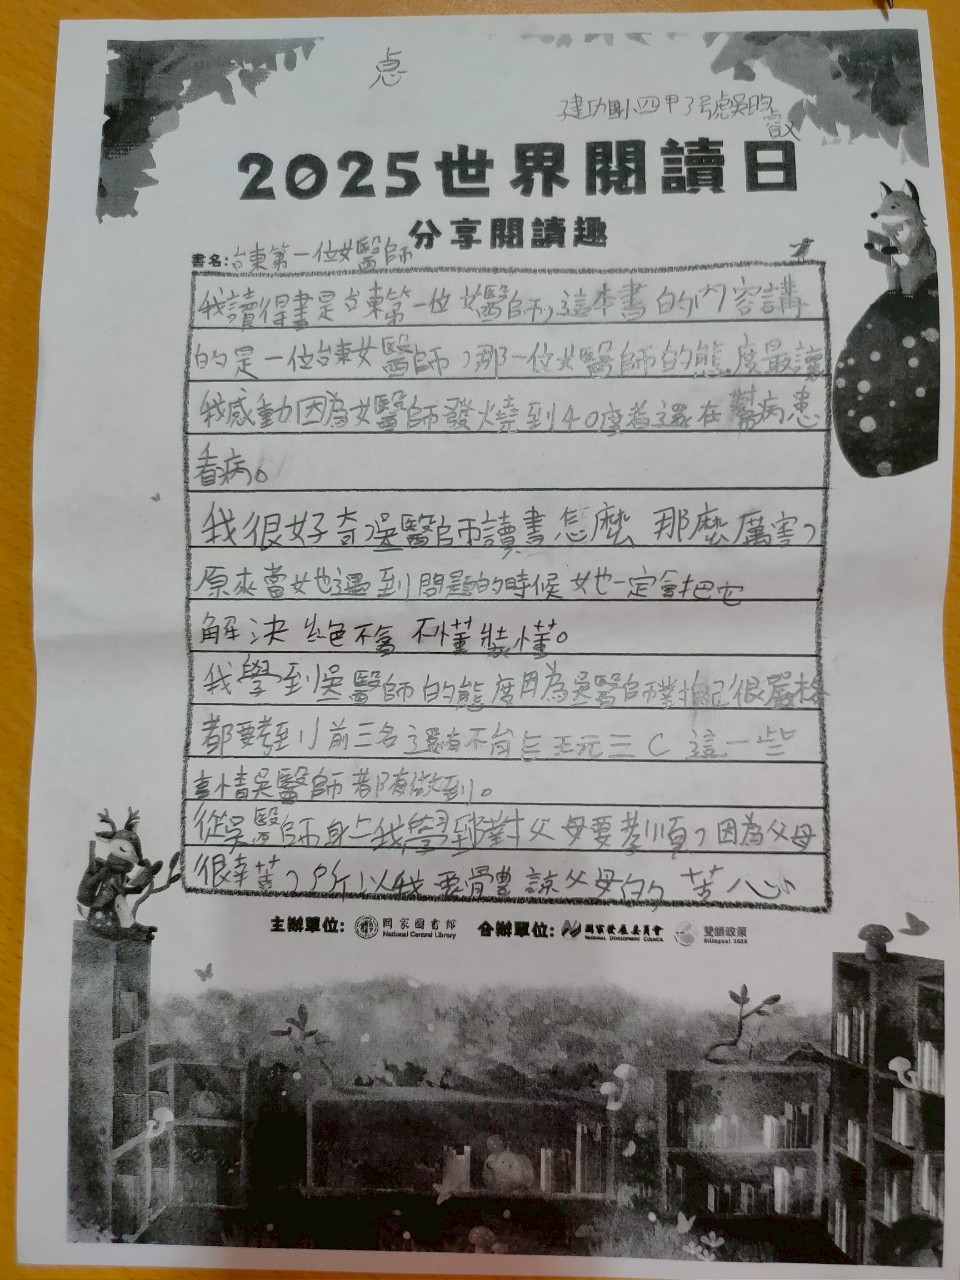 建功國小四甲3號吳昀叡
2025世界閱讀日
分享閱讀趣
書名:台東第一位女醫師
我讀得書是台東第一位女醫師,這本書的內容講
的是一位台東女醫師,那一位女醫師的態度最讓
我感動因為女醫師發燒到40度着還在幫病患
看病。
我很好奇吳醫師讀書怎麼那麼厲害,
原來當她遇到問題的時候她一定會把它
解決絕不會不懂裝懂。
我學到吳醫師的態度因為吳醫師對自己很嚴格
都要考到前三名還有不能玩三C這一些
事情吳醫師都有做到。
從吳醫師身上我學到對父母要孝順,因為父母
很辛苦,所以我要體諒父母的苦心
主辦單位: 國家圖書館 National Central Library 合辦單位: 國家發展委員會 NATIONAL DEVELOPMENT COUNCIL 雙語政策 Bilingual 2030